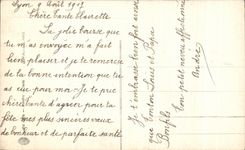 Lyon 9 Août 1915
Chère Tante Clairette
La jolie carte que
tu m'as envoyée m'a fait
bien plaisir et je te remercie
de la bonne intention que tu
as eu pour moi. Je te prie
chère tante d'agréer pour ta
fête mes plus sincères vœux
de bonheur et de parfaite santé
Je t'embrasse bien fort ainsi
que tonton Louis et Papa
ton petit neveu affectionné